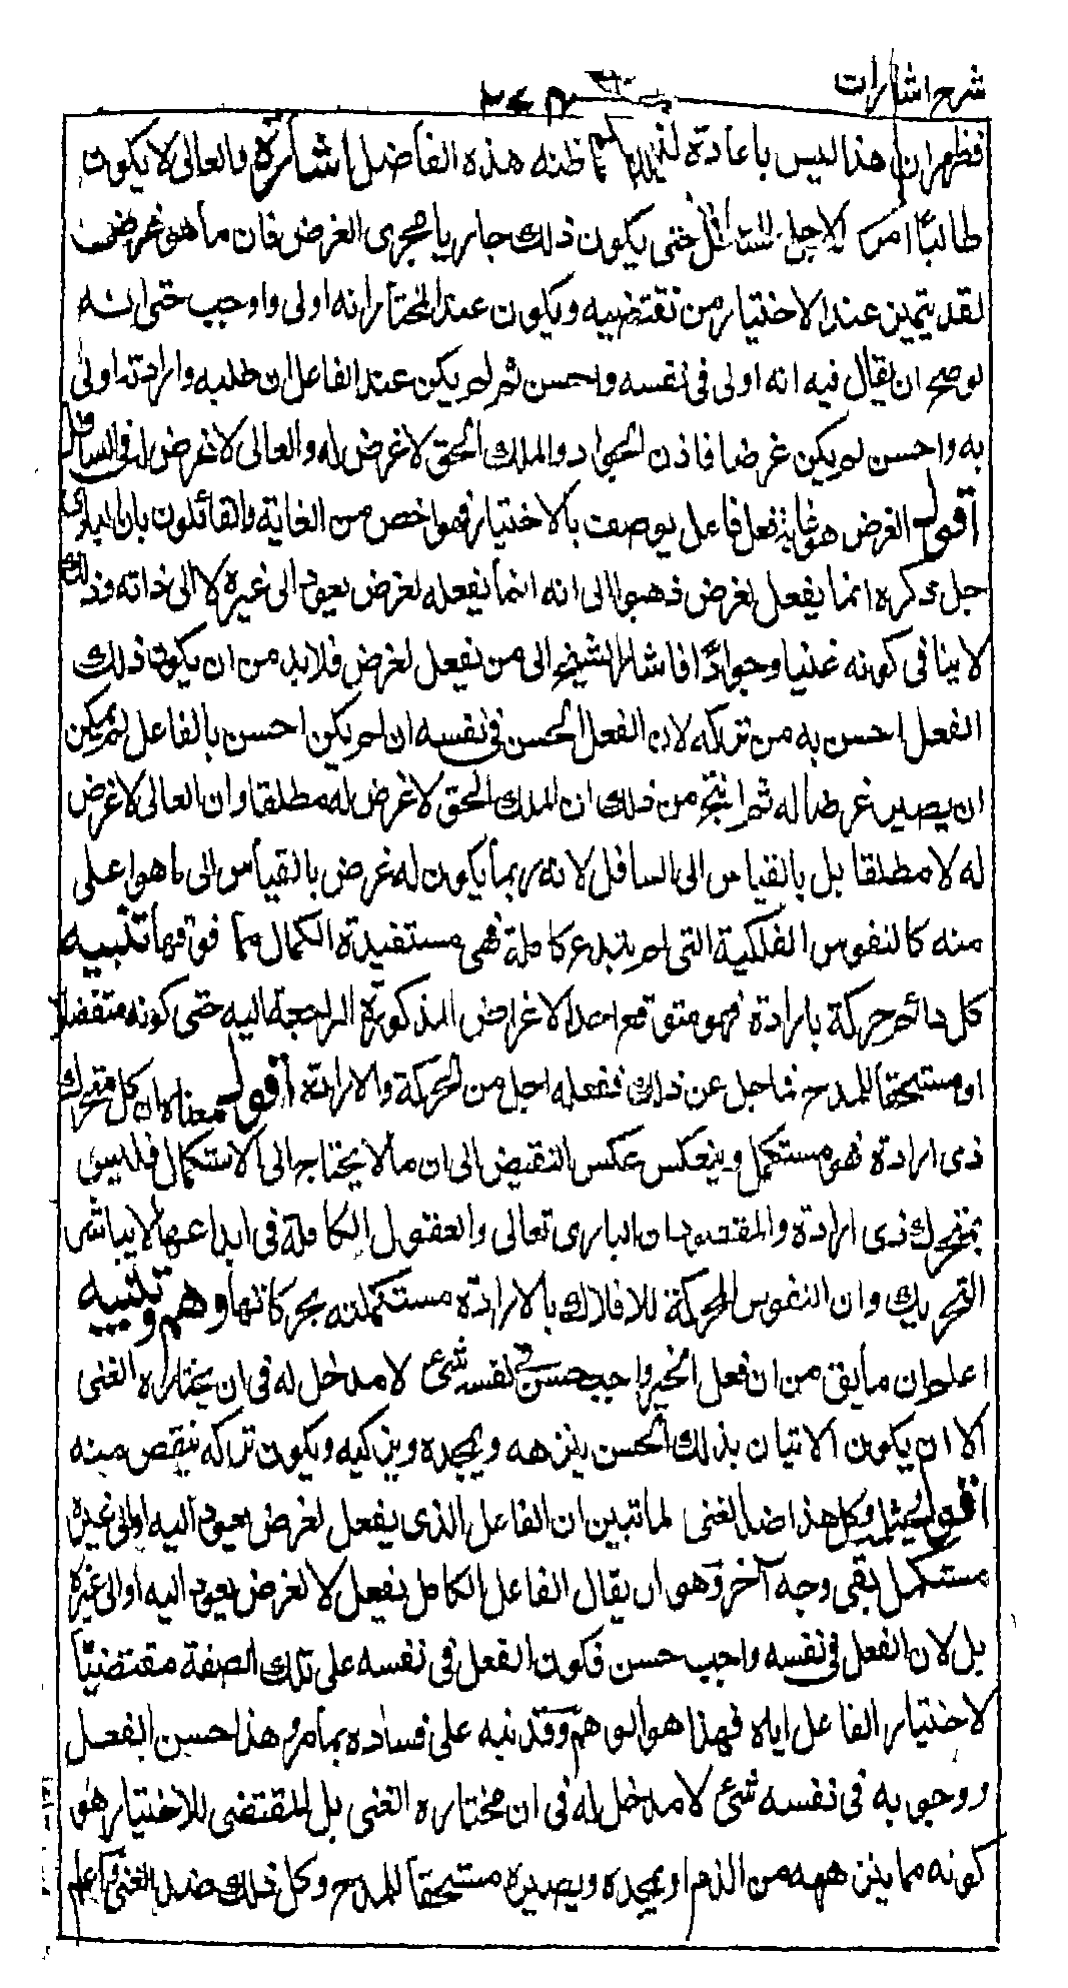 شرح اشارات
فظهر ان هذا ليس باعادة كما ظنه هذه الفاضل اشارة والعالى لا يكون
طالبا امرا لاجل السافل حتى يكون ذلك جاريا مجرى الغرض فان ما هو غرض
لقد يتميز عند الاختيار من نقيضه ويكون عند المختار انه اولى واوجب حتى انه
لو صح ان يقال فيه انه اولى فى نفسه واحسن ثم لم يكن عند الفاعل ان طلبه وارادته اولى
به واحسن لم يكن غرضا فاذن الجواد والملك الحق لا غرض له والعالى لا غرض له فى السافل
اقول الغرض هو غاية فعل فاعل يوصف بالاختيار فهو اخص من الغاية والقائلون بان البارى
جل ذكره انما يفعل لغرض ذهبوا الى انه انما يفعله لغرض يعود الى غيره لا الى ذاته فذلك
لا ينافى كونه غنيا وجوادا فاشار الشيخ الى من يفعل لغرض فلا بد من ان يكون ذلك
الفعل احسن به من تركه لان الفعل الحسن فى نفسه ان لم يكن احسن بالفاعل لم يمكن
ان يصير غرضا له ثم انتج من ذلك ان الملك الحق لا غرض له مطلقا وان العالى لا غرض
له لا مطلقا بل بالقياس الى السافل لانه ربما يكون له غرض بالقياس الى ما هو اعلى
منه كالنفوس الفلكية التى لم يتبدع كاملة فهى مستفيدة الكمال مما فوقها تنبيه
كل دائم حركة بارادة فهو متوقع احد الاغراض المذكورة الراجعة اليه حتى كونه متفضلا
او مستحقا للمدح فما جل عن ذلك ففعله اجل من الحركة والارادة اقول معناه ان كل متحرك
ذى ارادة فهو مستكمل وينعكس عكس النقيض الى ان ما لا يحتاج الى الاستكمال فليس
بمتحرك ذى ارادة والمقصود ان البارى تعالى والعقول الكاملة فى ابداعها لا يباشر
التحريك وان النفوس المحركة للافلاك بالارادة مستكملة بحركاتها وهم وتنبيه
اعلم ان ما يق من ان فعل الخير واجب حسن فى نفسه شئ لا مدخل له فى ان يختاره الغنى
الا ان يكون الاتيان بذلك الحسن ينزهه ويمجده ويزكيه ويكون تركه ينقص منه
ويثلمه وكل هذا ضد الغنى اقول لما تبين ان الفاعل الذى يفعل لغرض يعود اليه او الى غيره
مستكمل بقى وجه آخر وهو ان يقال الفاعل الكامل يفعل لا لغرض يعود اليه او الى غيره
بل لان الفعل فى نفسه واجب حسن فكون الفعل فى نفسه على تلك الصفة مقتضيا
لاختيار الفاعل اياه فهذا هو الوهم وقد نبه على فساده بما مر وهذا حسن الفعل
ووجوبه فى نفسه شئ لا مدخل له فى ان مختاره الغنى بل المقتضى للاختيار هو
كونه مما ينزهه من الذم او يمجده ويصيره مستحقا للمدح وكل ذلك ضد الغنى واعلم